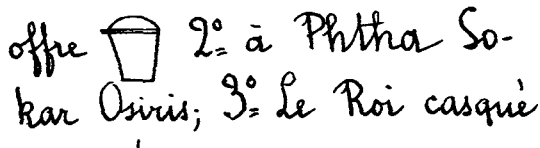 offre 2º à Phtha So-
kar Osiris; 3º Le Roi casqué